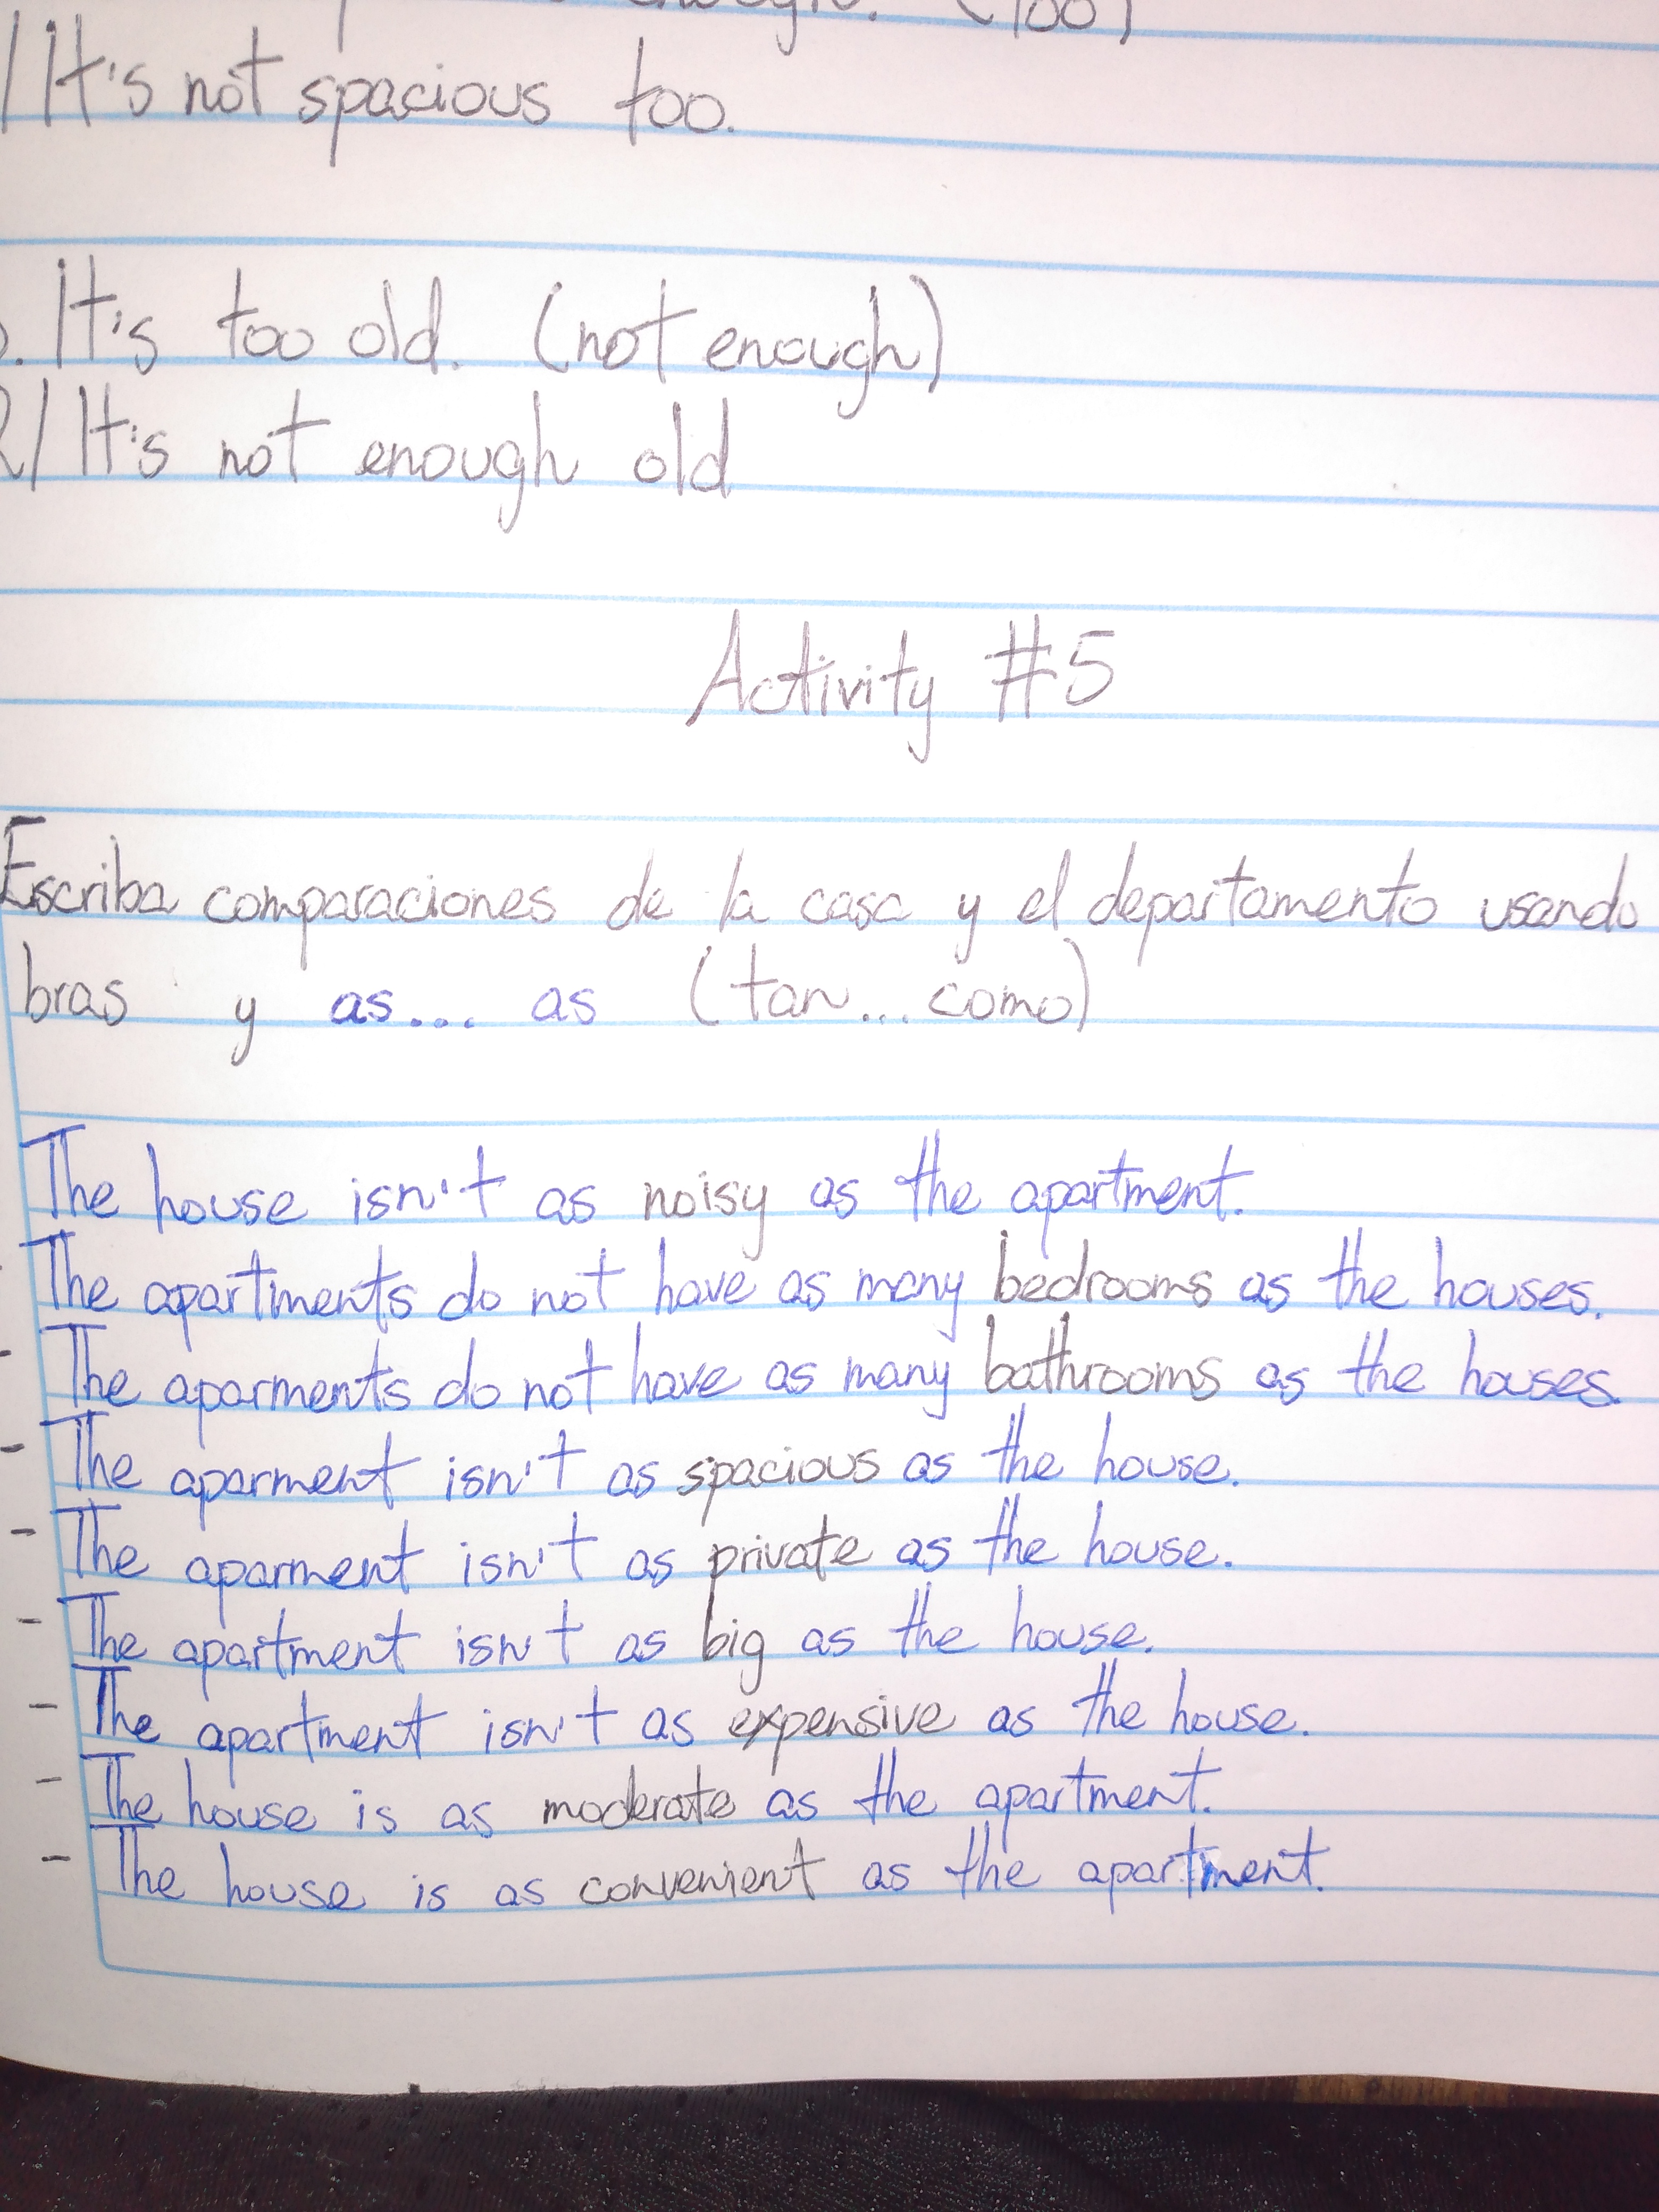 (too)
/ It's not spacious too.
. It's too old. (not enough)
R/ It's not enough old
Activity #5
Escriba comparaciones de la casa y el departamento usando
bras y as... as (tan... como)
The house isn't as noisy as the apartment.
The apartments do not have as many bedrooms as the houses.
- The aparments do not have as many bathrooms as the houses.
- The aparment isn't as spacious as the house.
- The aparment isn't as private as the house.
- The apartment isn't as big as the house.
- The apartment isn't as expensive as the house.
- The house is as moderate as the apartment.
- The house is as convenient as the apartment.